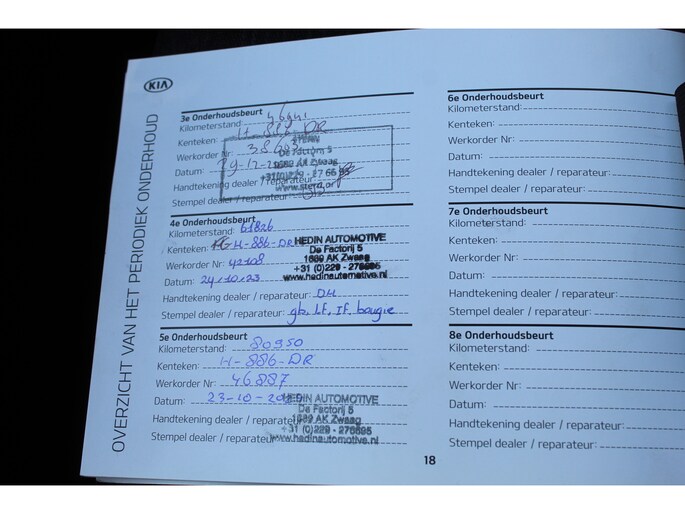 KIA
OVERZICHT VAN HET PERIODIEK ONDERHOUD
3e Onderhoudsbeurt
Kilometerstand:
Kenteken: H-886-DR
Werkorder Nr:
Datum:
Handtekening dealer / reparateur:
Stempel dealer / reparateur:
STERN
De Factorij 5
1689 AK Zwaag
4e Onderhoudsbeurt
Kilometerstand: 61826
Kenteken: H-886-DR
Werkorder Nr: 42108
Datum: 24-10-23
Handtekening dealer / reparateur: DH
Stempel dealer / reparateur: gb, LF, IF, bougie
HEDIN AUTOMOTIVE
De Factorij 5
1689 AK Zwaag
+31 (0)229 - 276695
www.hedinautomotive.nl
5e Onderhoudsbeurt
Kilometerstand: 80950
Kenteken: H-886-DR
Werkorder Nr: 46887
Datum: 23-10-
Handtekening dealer / reparateur:
Stempel dealer / reparateur:
HEDIN AUTOMOTIVE
De Factorij 5
1689 AK Zwaag
+31 (0)229 - 276695
www.hedinautomotive.nl
6e Onderhoudsbeurt
Kilometerstand:
Kenteken:
Werkorder Nr:
Datum:
Handtekening dealer / reparateur:
Stempel dealer / reparateur:
7e Onderhoudsbeurt
Kilometerstand:
Kenteken:
Werkorder Nr:
Datum:
Handtekening dealer / reparateur:
Stempel dealer / reparateur:
8e Onderhoudsbeurt
Kilometerstand:
Kenteken:
Werkorder Nr:
Datum:
Handtekening dealer / reparateur:
Stempel dealer / reparateur:
18